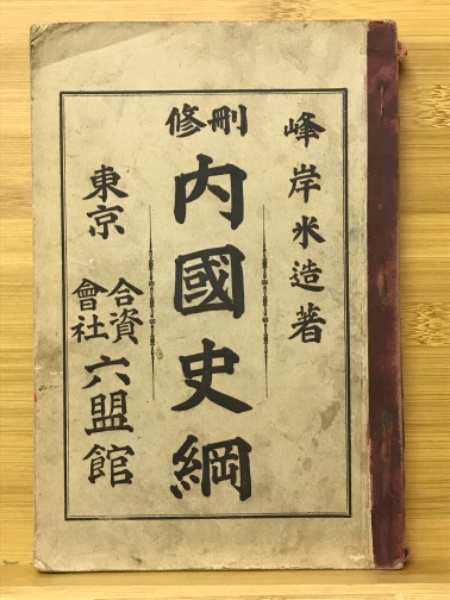 峰岸米造著
刪修
内國史綱
東京
合資會社六盟館